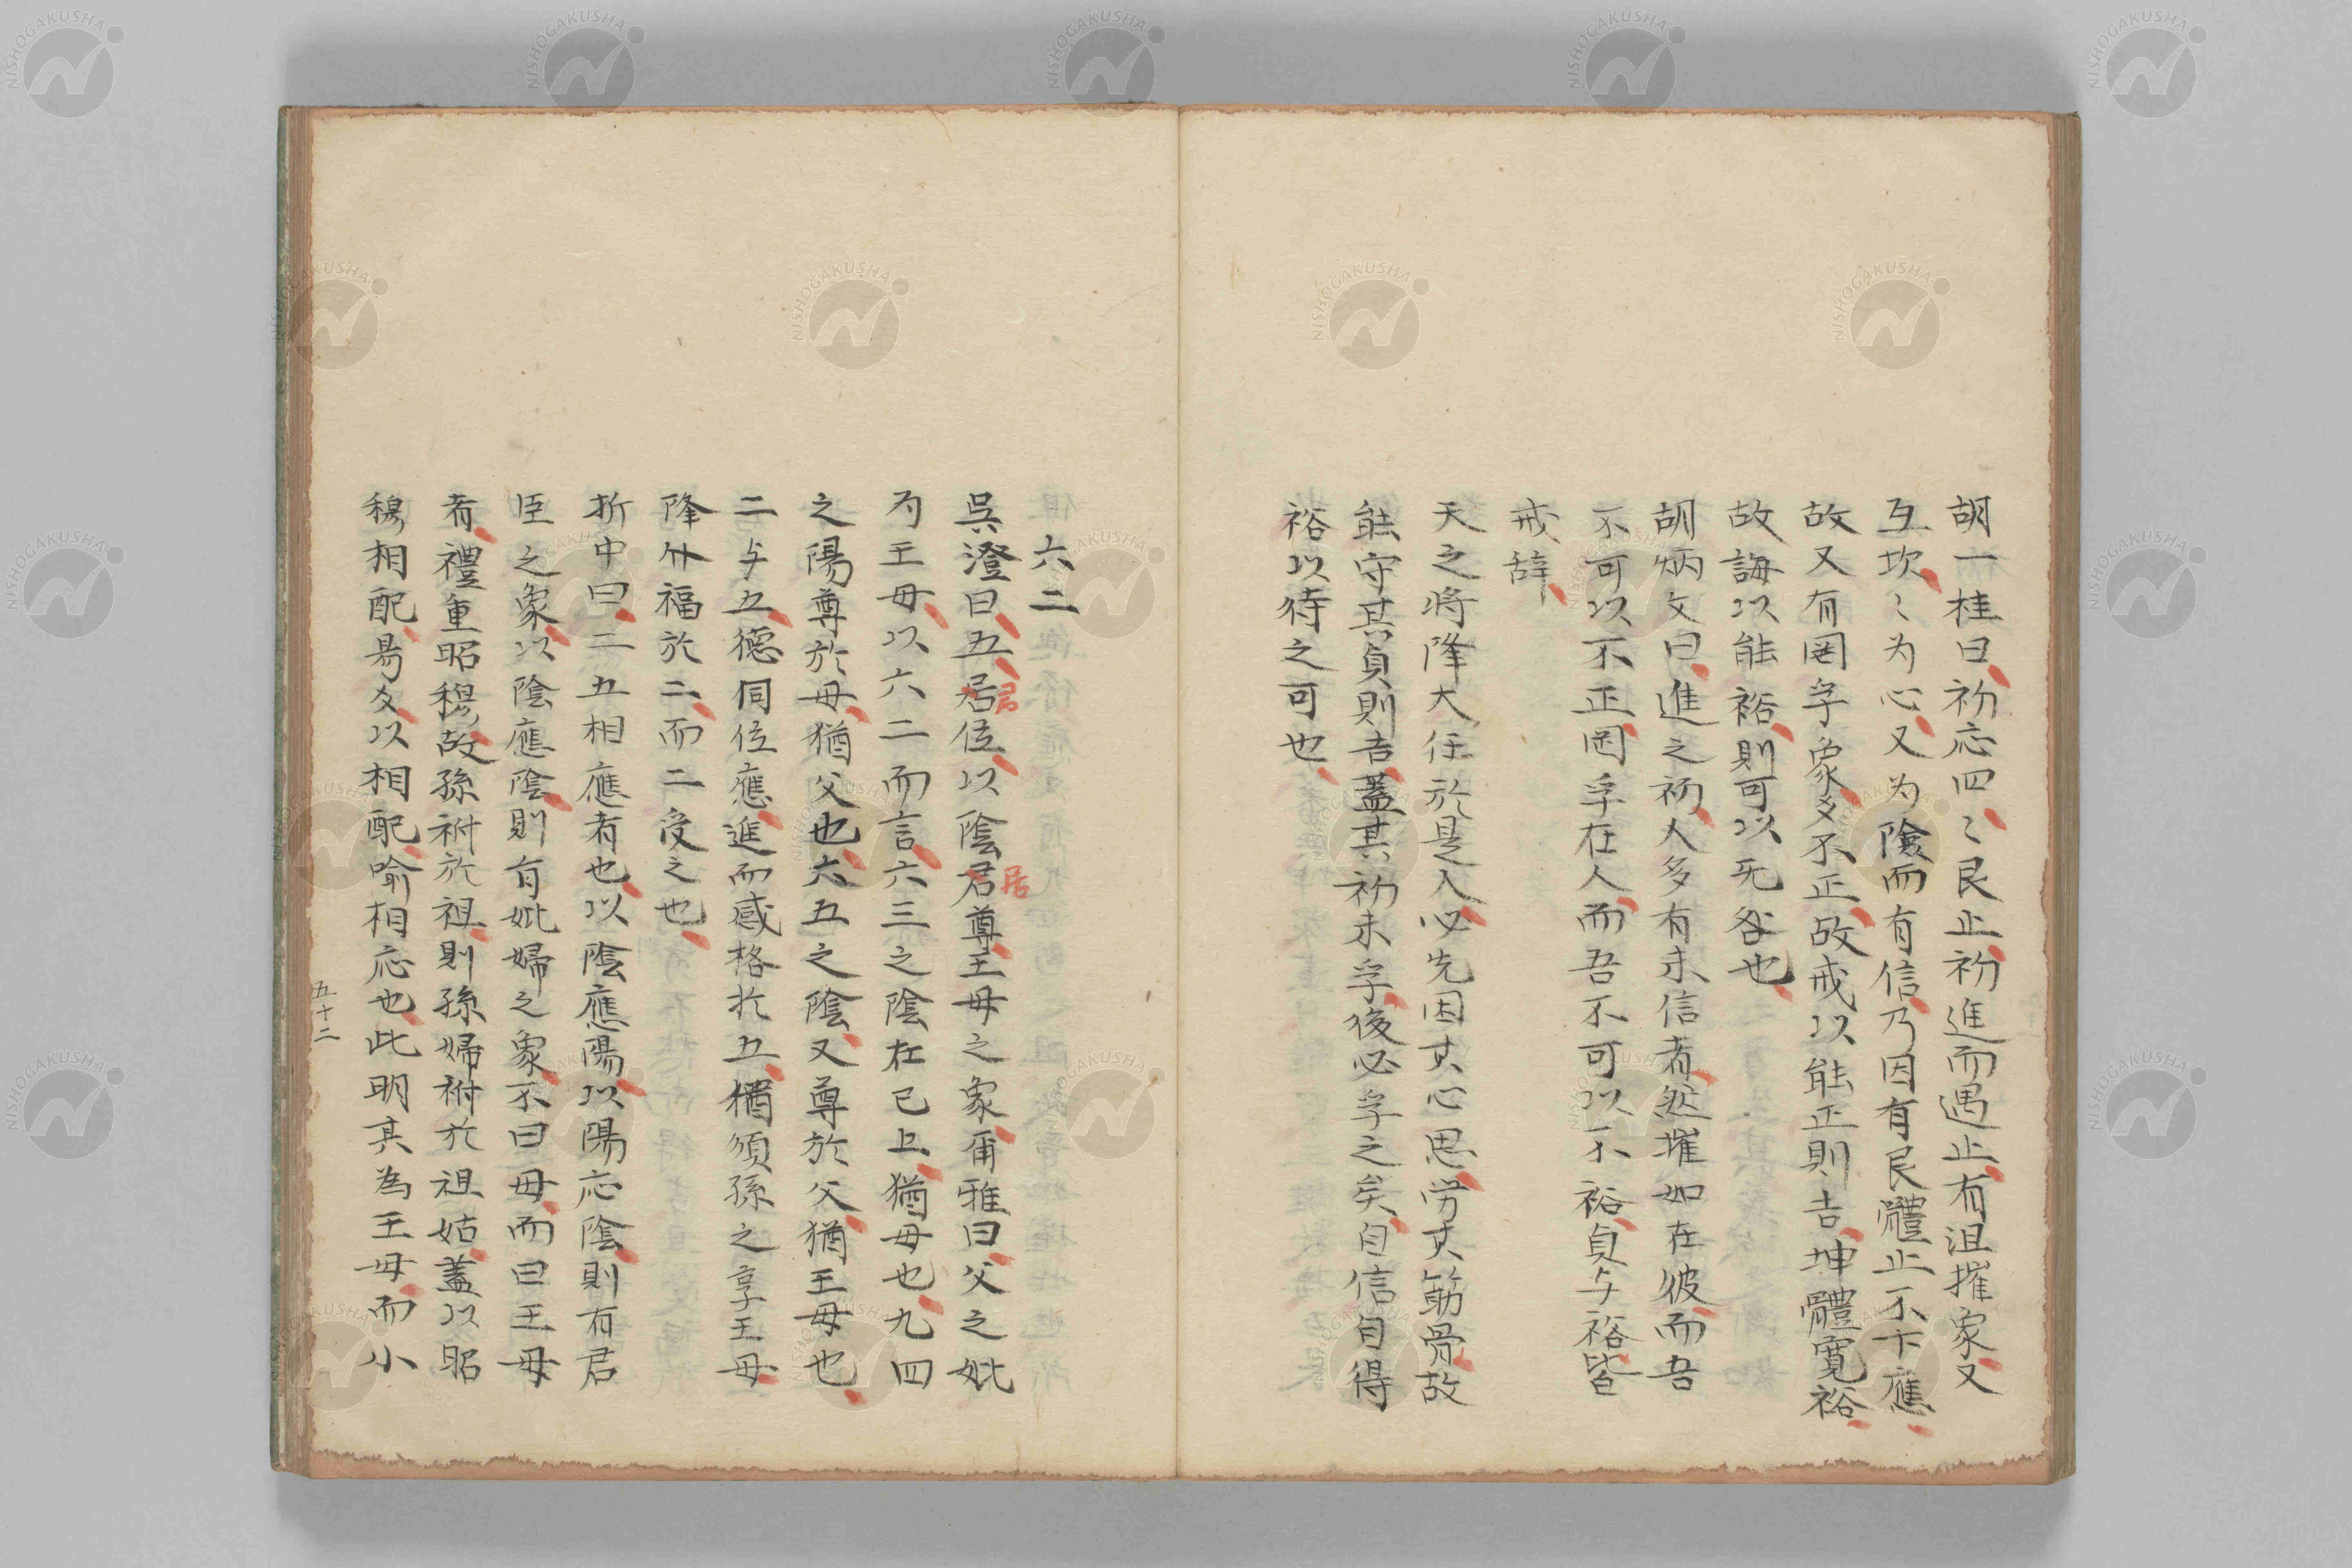 胡一桂曰初応四〻艮止初進而遇止有沮摧象又
互坎〻为心又为險而有信乃因有艮體止不卞應
故又有罔孚象爻不正故戒以能正則吉坤體寬裕
故誨以能裕則可以无咎也
胡炳文曰進之初人多有未信者然摧如在彼而吾
不可以不正罔孚在人而吾不可以不裕貞与裕皆
戒辞
天之將降大任於是人必先困其心思労其筋骨故
能守其貞則吉蓋其初未孚後必孚之矣自信自得
裕以待之可也
六二
吳澄曰五居位以陰君尊王母之象爾雅曰父之妣
居
居
为王母以六二而言六三之陰在已上猶母也九四
之陽尊於母猶父也六五之陰又尊於父猶王母也
二与五德同位應進而感格於五猶順孫之享王母
降介福於二而二受之也
折中曰二五相應者也以陰應陽以陽応陰則有君
臣之象以陰應陰則有妣婦之象不曰母而曰王母
者禮重昭穆故孫祔於祖則孫婦祔於祖姑蓋以昭
穆相配易爻以相配喻相応也此明其為王母而小
五十二
NISHOGAKUSHA